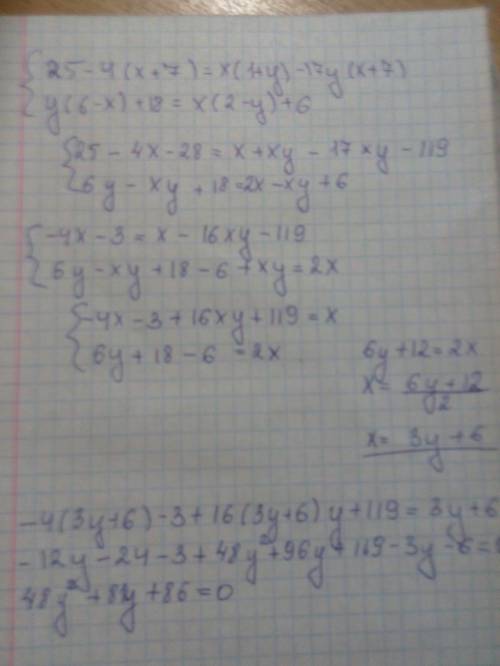 25-4(x+7)=x(1+y)-17y(x+7)
y(6-x)+18=x(2-y)+6
25-4x-28=x+xy-17xy-119
6y-xy+18=2x-xy+6
-4x-3=x-16xy-119
6y-xy+18-6+xy=2x
-4x-3+16xy+119=x
6y+18-6=2x
6y+12=2x
x=(6y+12)/2
x=3y+6
-4(3y+6)-3+16(3y+6)y+119=3y+6
-12y-24-3+48y²+96y+119-3y-6=
48y²+81y+86=0